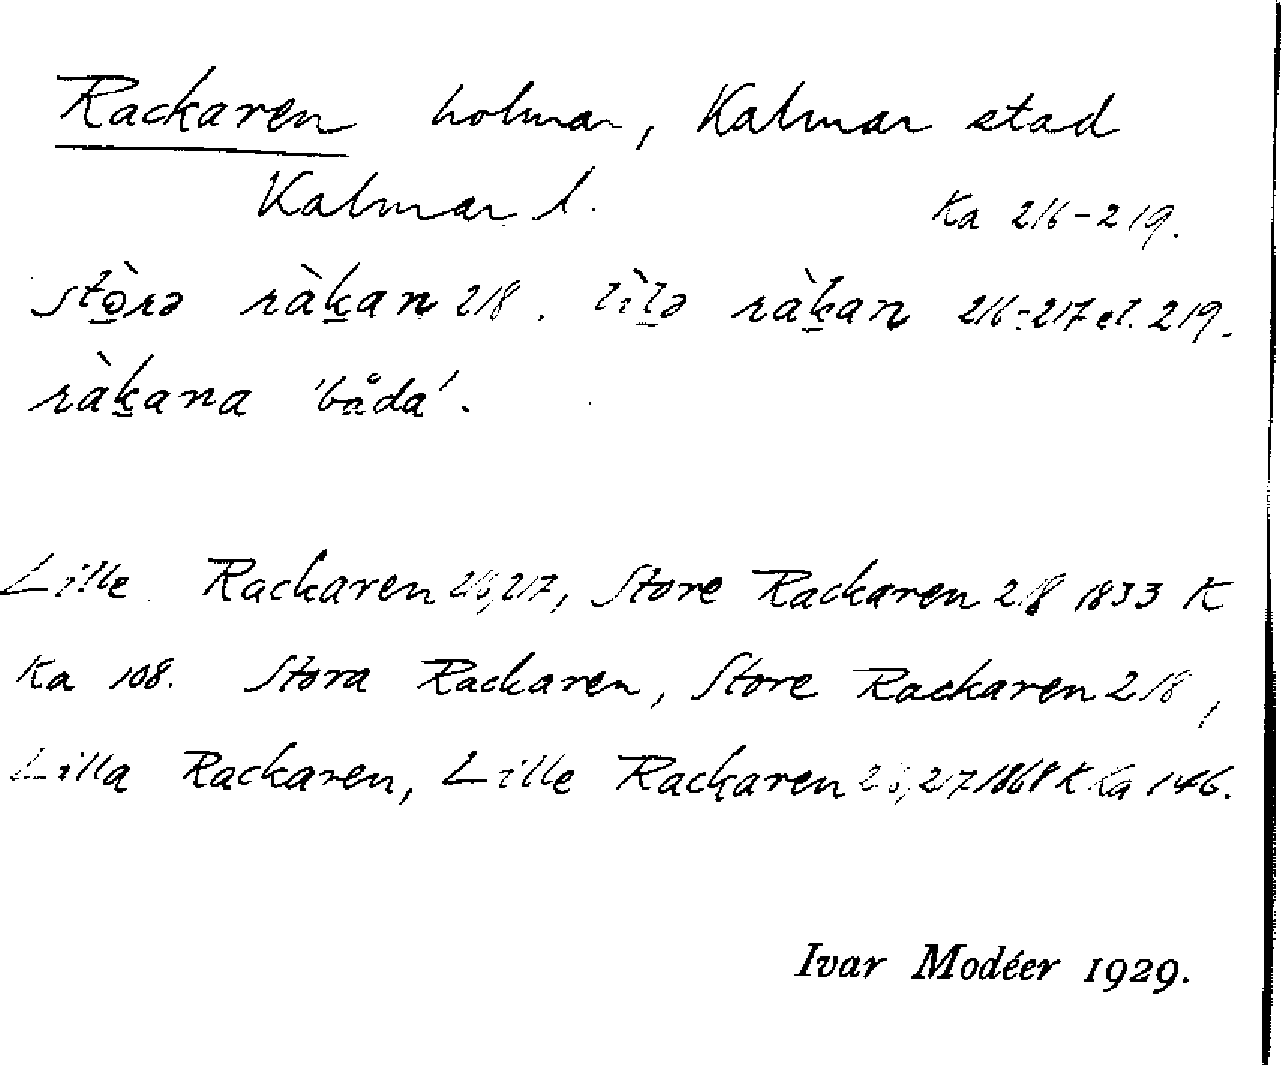 Rackaren holmar, Kalmar stad
Kalmar l. Ka 216-219.
stò̱rə ràḵan 218. lìḻə ràḵan 216-217 el. 219.
ràḵana 'båda'.
Lille Rackaren 216, 217, Store Rackaren 218 1833 K
Ka 108. Stora Rackaren, Store Rackaren 218,
Lilla Rackaren, Lille Rackaren 216, 217 1868 K Ka 146.
Ivar Modéer 1929.